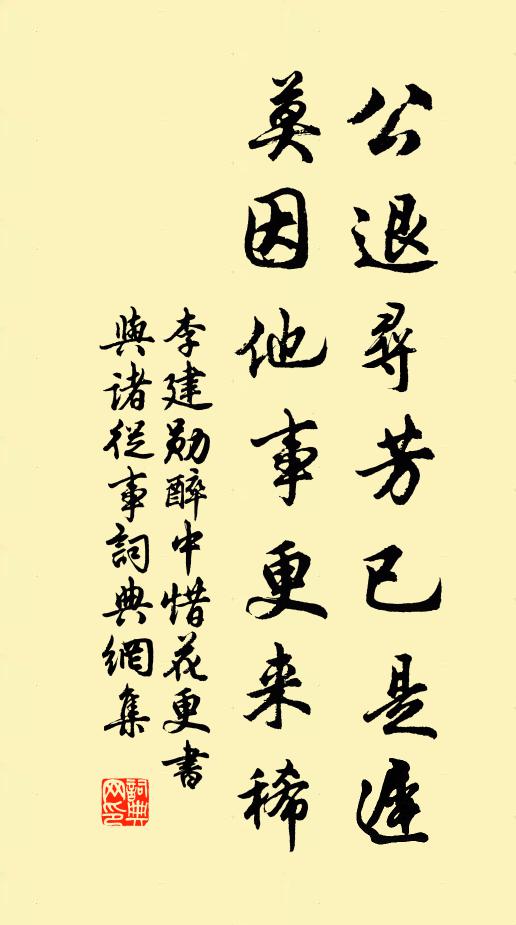 公退尋芳已是遲
莫因他事更来稀
李建勋醉中惜花更書
與諸從事詞典網集
詞典網印